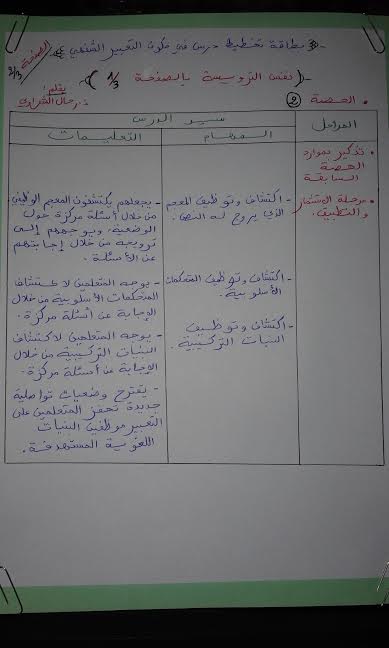 بطاقة تخطيط درس في مكون التعبير الشفهي
الصفحة 2/3
(نفس الترويسة بالصفحة 1/3)
بقلم:
ذ. رحال الشرادي
• الحصة 2
المراحل
سير الدرس
المهام
التعليمات
• تذكير بموارد
الحصة
السابقة
• مرحلة الاستثمار
والتطبيق.
- اكتشاف وتوظيف المعجم
الذي يروج له النص.
- اكتشاف وتوظيف المتحكمات
الأسلوبية.
- اكتشاف وتوظيف
البنيات التركيبية.
- يجعلهم يكتشفون المعجم الوظيفي
من خلال أسئلة مركزة حول
الوضعية، ويوجههم إلى
ترويجه من خلال إجابتهم
عن الأسئلة.
- يوجه المتعلمين لاكتشاف
المتحكمات الأسلوبية من خلال
الإجابة عن أسئلة مركزة.
- يوجه المتعلمين لاكتشاف
البنيات التركيبية من خلال
الإجابة عن أسئلة مركزة.
- يقترح وضعيات تواصلية
جديدة تحفز المتعلمين على
التعبير موظفين البنيات
اللغوية المستهدفة.